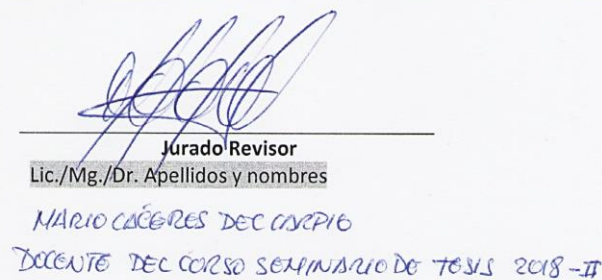 Jurado Revisor
Lic./Mg./Dr. Apellidos y nombres
MARIO CÁCERES DEL CARPIO
DOCENTE DEL CURSO SEMINARIO DE TESIS 2018-II